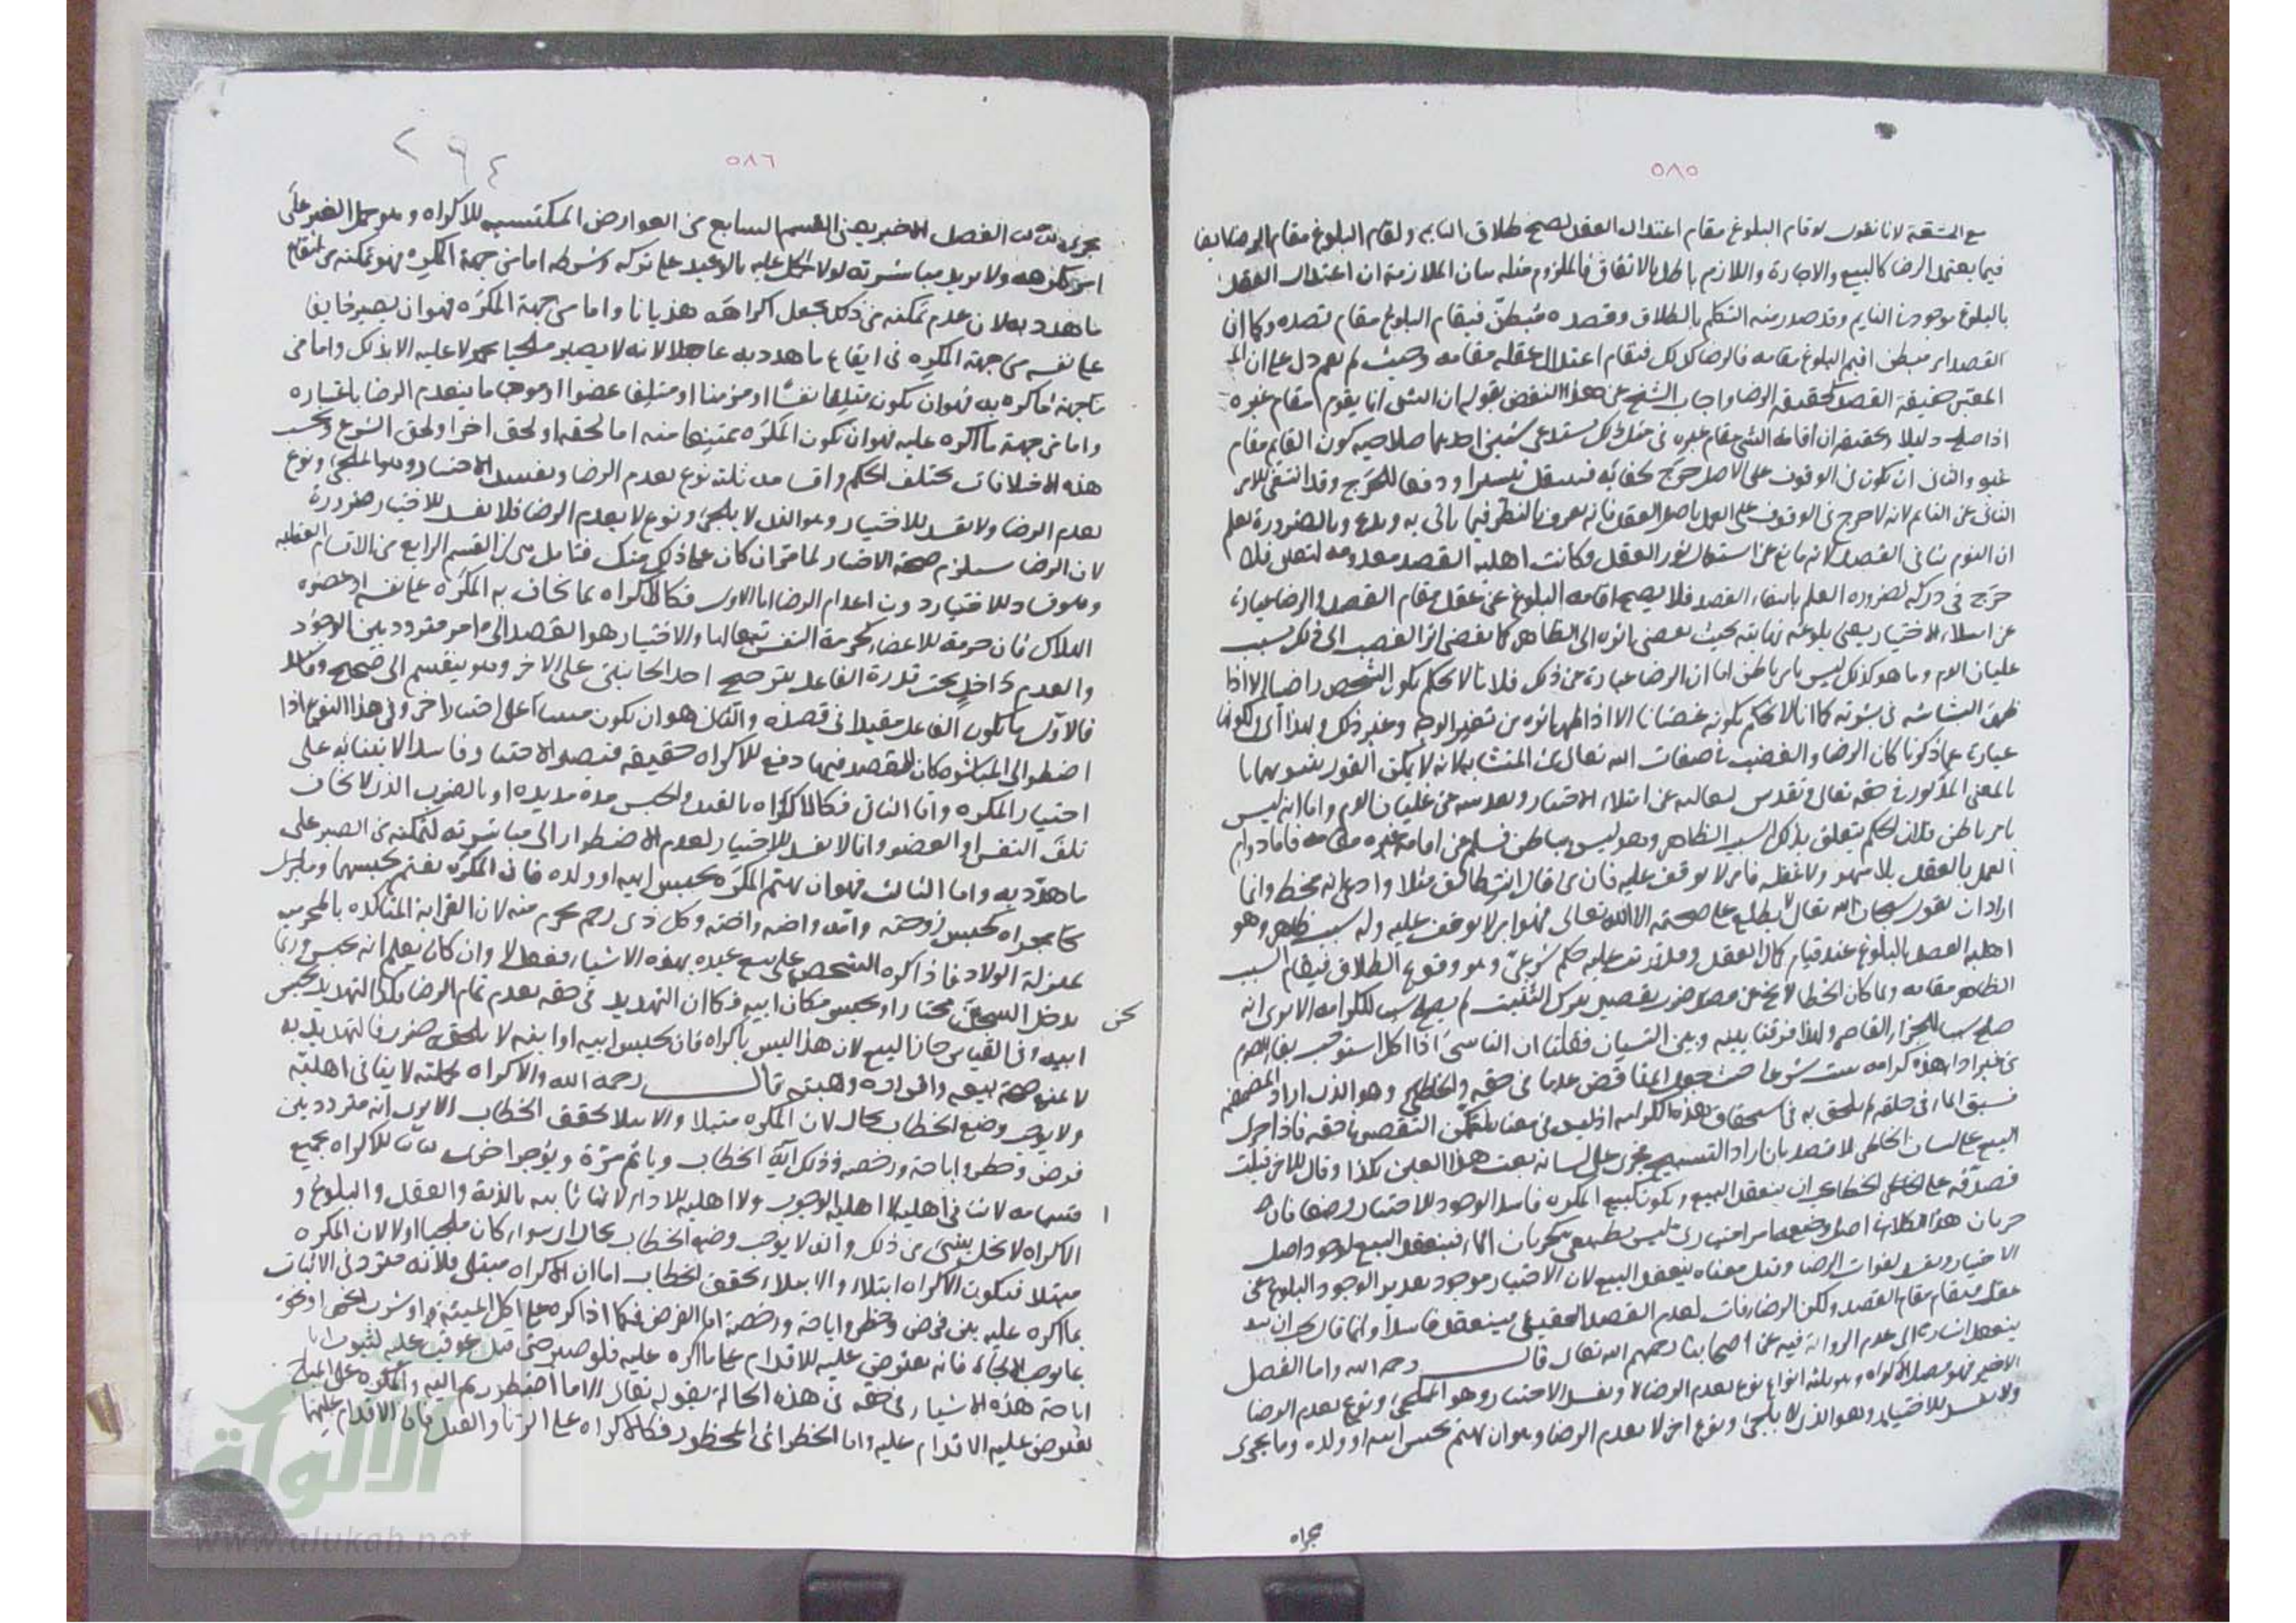 ٥٨٥
مع المشقة لانا نقول لو قام البلوغ مقام اعتدال العقل لصح طلاق النايم ولقام البلوغ مقام الرضا ايضا
فيما يعتمد الرضا كالبيع والاجارة واللازم باطل بالاتفاق فالملزوم مثله بيان الملازمة ان اعتدال العقل
بالبلوغ موجود في النايم وقد صدر منه التكلم بالطلاق وقصده مبطن فيقام البلوغ مقام قصده وكما ان
القصد امر مبطن اقيم البلوغ مقامه فالرضا كذلك فيقام اعتدال عقله مقامه وحيث لم يقم دل على ان
المعتبر حقيقة القصد كحقيقة الرضا واجاب الشيخ عن هذا النقض بقوله ان الشى انما يقوم مقام غيره
اذا صلح دليلا وتحقيقه ان اقامة الشى مقام غيره في مثل ذلك يستدعي شيئين احدهما صلاحية كون القايم مقام
غيره والثاني ان يكون في الوقوف على الاصل حرج لخفائه فينتقل تيسيرا ودفعا للحرج وقد انتفى الامر
الثاني عن النايم لانه لا حرج في الوقوف على العمل باصل العقل فانه يعرف بالنظر فيما ياتي به ويدع وبالضرورة يعلم
ان النوم ينافي القصد لانه مانع عن استعمال نور العقل وكانت اهلية القصد معدومة لتعلق فلا
حرج في دركه لضرورة العلم بانتفاء القصد فلا يصح اقامة البلوغ عن عقل مقام القصد والرضا عبارة
عن امتلاء الاختيار يعني بلوغه نهايته بحيث يفضي اثره الى الظاهر كما يفضي اثر الغضب الى ذلك بسبب
غليان الدم وما هو كذلك ليس بامر باطن اما ان الرضا عبارة عن ذلك فلانا لا نحكم بكون الشخص راضيا الا اذا
ظهرت البشاشة في بشرته كما انا لا نحكم بكونه غضبانا الا اذا ظهر اثره من تغير الوجه وغير ذلك ولهذا اي لكونهما
عبارة عما ذكرنا كان الرضا والغضب من صفات الله تعالى من المتشابه لانه لا يمكن القول بثبوتهما
بالمعنى المذكور في حقه تعالى وتقدس لتعاليه عن امتلاء الاختيار وتقدسه عن غليان الدم واما انه ليس
بامر باطن فلان الحكم يتعلق بذلك السبب الظاهر وهو ليس بباطن فسلم عن اقامة غيره مقامه فاما دوام
العمل بالعقل بلا سهو ولا غفلة فامر لا يوقف عليه فان من قال انت طالق مثلا وادعى انه مخطئ وانما
اراد ان يقول سبحان الله تعالى لا يطلع على صحته الا الله تعالى فهو امر لا يوقف عليه وله سبب ظاهر وهو
اهلية القصد بالبلوغ عند قيام كمال العقل وقد ترتب عليه حكم شرعي وهو وقوع الطلاق فيقام السبب
الظاهر مقامه ولما كان الخطا لا يخلو عن ضرب تقصير بترك التثبت لم يصلح سببا للكرامة الا يرى انه
صلح سببا للجزاء القاصر ولهذا فرقنا بينه وبين النسيان فقلنا ان الناسي اذا اكل استوجب بقاء الصوم
من غير اداء وهذه كرامة ثبتت شرعا حيث جعل المناقض عدما في حقه والخاطئ وهو الذي اراد المضمضة
فسبق الماء في حلقه لم يلحق به في استحقاق هذه الكرامة اذ ليس في معناه لتمكن التقصير في حقه فاذا جرى
البيع على لسان الخاطئ بلا قصد بان اراد التسبيح فجرى على لسانه بعت هذا العين بكذا وقال الاخر قبلت
فصدقه على الخطا يجب ان ينعقد البيع ويكون كبيع المكره فاسدا لوجود الاختيار وضعا فان
جريان هذا الكلام في اصل وضعه امر اختياري ليس بطبيعي كجريان الماء فينعقد البيع لوجود اصل
الاختيار ويفسد لفوات الرضا وقيل معناه ينعقد البيع لان الاختيار موجود تقديرا لوجود البلوغ عن
عقل فيقام مقام القصد ولكن الرضا فات لعدم القصد الحقيقي فينعقد فاسدا وانما قال يجب ان
ينعقد اشارة الى عدم الرواية فيه عن اصحابنا رحمهم الله تعالى قال رحمه الله واما الفصل
الاخير فهو فصل الاكراه وهو ثلثة انواع نوع يعدم الرضا ويفسد الاختيار وهو الملجئ ونوع يعدم الرضا
ولا يفسد الاختيار وهو الذي لا يلجئ ونوع اخر لا يعدم الرضا وهو ان يهتم بحبس ابيه او ولده وما يجرى
مجراه
٥٨٦
٢٦٤
مجرى ذلك الفصل الاخير يعني القسم السابع من العوارض المكتسبة للاكراه وهو حمل الغير على
امر يكرهه ولا يريد مباشرته لولا الحمل عليه بالوعيد على تركه وشرطه اما من جهة المكره فهو تمكنه من ايقاع
ما هدد به لان عدم تمكنه من ذلك يجعل اكراهه هذيانا واما من جهة المكره فهو ان يصير خايفا
على نفسه من جهة المكره في ايقاع ما هدد به عاجلا لانه لا يصير ملجيا محمولا عليه الا بذلك واما من
جهة ما اكره به فهو ان يكون متلفا نفسا او مزمنا او متلفا عضوا او موجبا ما ينعدم الرضا باعتباره
واما من جهة ما اكره عليه فهو ان يكون المكره ممتنعا منه اما لحقه او لحق اخر او لحق الشرع وبحسب
هذه الاختلافات يختلف الحكم واقسامه ثلثة نوع يعدم الرضا ويفسد الاختيار وهو الملجئ ونوع
يعدم الرضا ولا يفسد الاختيار وهو الذي لا يلجئ ونوع لا يعدم الرضا فلا يفسد الاختيار ضرورة
لان الرضا يستلزم صحة الاختيار لما مر ان كان على ذكر منك فتامل بقي القسم الرابع من الاقسام العقلية
وهو فساد الاختيار دون اعدام الرضا اما الاول فكالاكراه بما يخاف به المكره على نفسه او عضوه
الهلاك فان حرمة الاعضاء كحرمة النفس تبعا لها والاختيار هو القصد الى امر متردد بين الوجود
والعدم داخل تحت قدرة الفاعل بترجيح احد الجانبين على الاخر وهو ينقسم الى صحيح وفاسد
فالاول ما يكون الفاعل مستبدا في قصده والثاني هو ان يكون مبنيا على اختيار اخر وفي هذا النوع اذا
اضطر الى المباشرة كان القصد فيها دفع الاكراه حقيقة فيصير الاختيار فاسدا لابتنائه على
اختيار المكره واما الثاني فكالاكراه بالقيد والحبس مدة مديدة او بالضرب الذي لا يخاف
تلف النفس او العضو وانما لا يفسد الاختيار لعدم الاضطرار الى مباشرته لتمكنه من الصبر على
ما هدد به واما الثالث فهو ان يهتم المكره بحبس ابيه او ولده فان المكره يغتم بحبسهما وما يجرى
مجراه كحبس زوجته وامه واخيه واخته وكل ذي رحم محرم منه لان القرابة المتاكدة بالمحرمية
بمنزلة الولاد فاذا اكره الشخص على بيع عبده بهذه الاشياء ففعل لا وان كان يعلم انه يحبس وربما
يدخل السجن مختارا ويحبس مكان ابيه فكما ان التهديد في حقه يعدم تمام الرضا فكذا التهديد بحبس
ابيه وفي القياس جاز البيع لان هذا ليس باكراه فان بحبس ابيه او ابنه لا يلحقه ضرر فالتهديد به
لا يمنع صحة بيعه واقراره وهبته قال رحمه الله والاكراه بجملته لا ينافي اهلية
ولا يوجب وضع الخطاب بحال لان المكره مبتلا والابتلاء يحقق الخطاب الا يرى انه متردد بين
فرض وحظر واباحة ورخصة وذلك آية الخطاب وياثم مرة ويؤجر اخرى للاكراه بجميع
اقسامه لا ينافي اهلية لا اهلية الوجوب ولا اهلية الاداء لانها ثابتة بالذمة والعقل والبلوغ و
الاكراه لا يخل بشئ من ذلك وانه لا يوجب وضع الخطاب بحال سواء كان ملجيا اولا لان المكره
مبتلا فيكون الاكراه ابتلاء والابتلاء يحقق الخطاب اما ان الاكراه مبتلى فلانه متردد في الاتيان
بما اكره عليه بين فرض وحظر واباحة ورخصة اما الفرض فكما اذا اكره على اكل الميتة او شرب الخمر او نحوه
بما يوجب الالجاء فانه يفترض عليه الاقدام على ما اكره عليه فلو صبر حتى قتل عوقب عليه لثبوت
اباحة هذه الاشياء في حقه في هذه الحالة بقوله تعالى الا ما اضطررتم اليه والمكره على المباح
يفترض عليه الاقدام عليه واما الحظر اي المحظور فكالاكراه على الزنا والقتل فان الاقدام عليهما
الألوكة
www.alukah.net